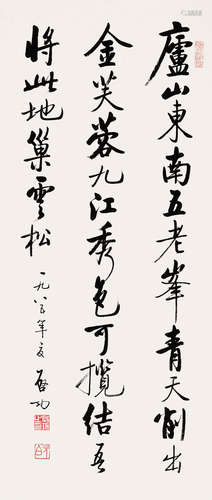 廬山東南五老峯青天削出
金芙蓉九江秀色可攬結吾
將此地巢雲松
一九八三年夏 啓功